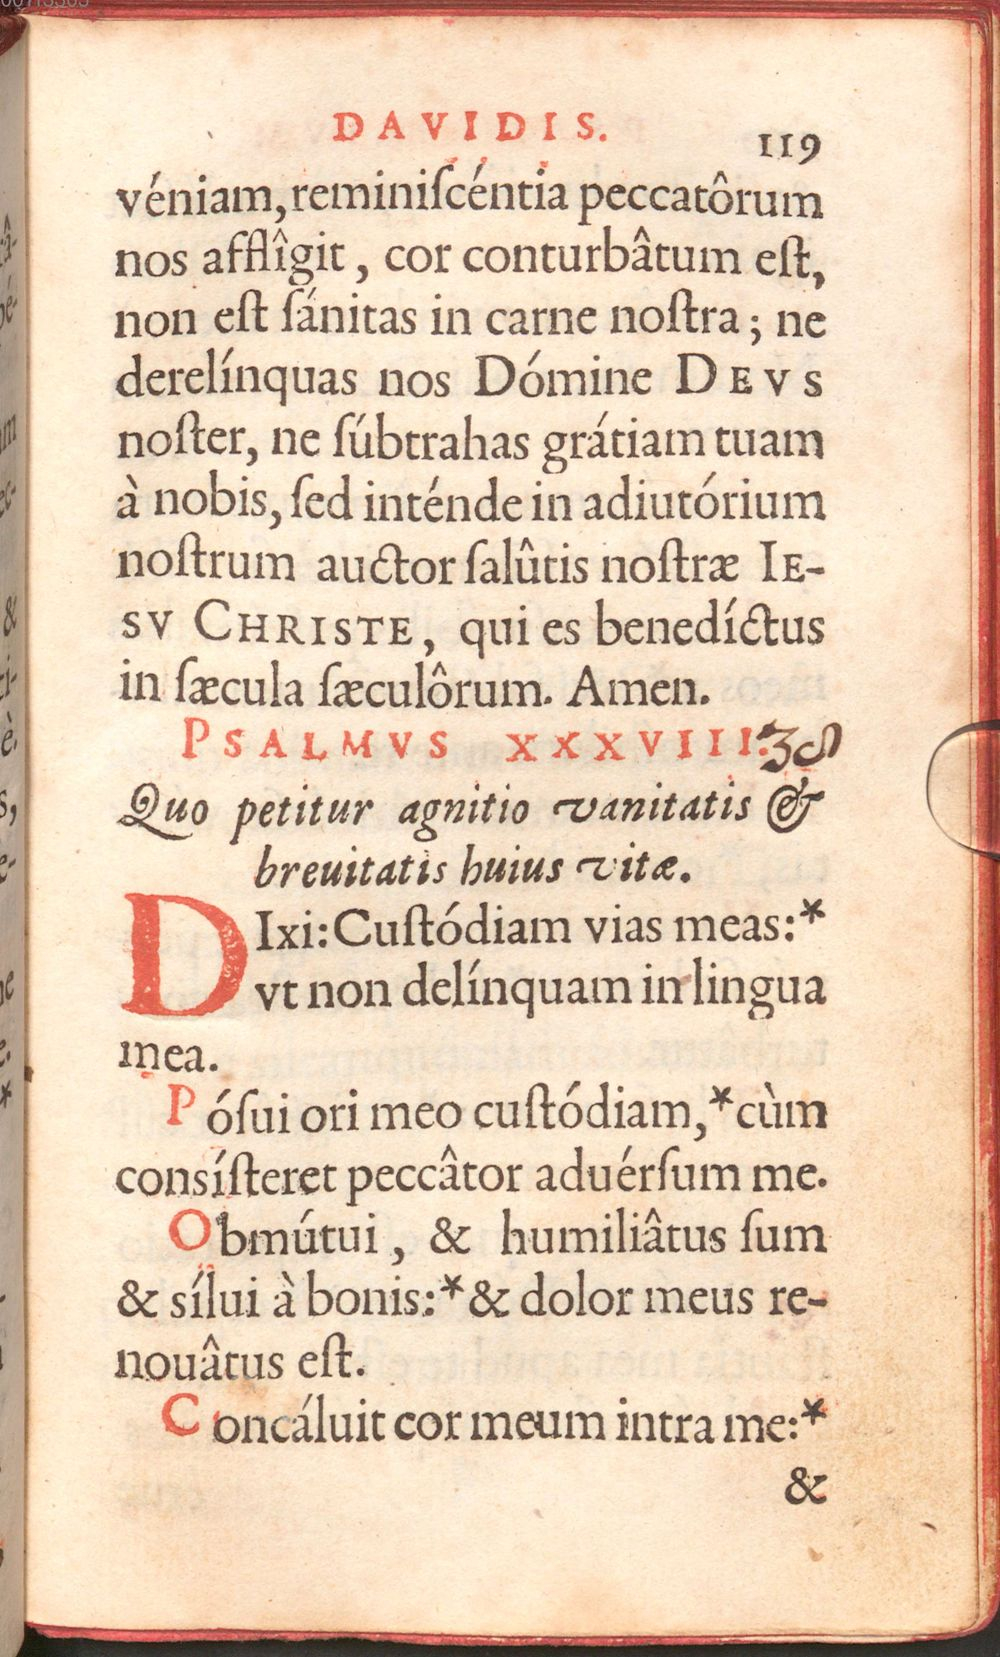 DAVIDIS.
119
véniam, reminiſcéntia peccatôrum
nos afflîgit, cor conturbâtum eſt,
non eſt ſánitas in carne noſtra; ne
derelínquas nos Dómine DEVS
noſter, ne ſúbtrahas grátiam tuam
à nobis, ſed inténde in adiutórium
noſtrum auctor ſalûtis noſtræ IE-
SV CHRISTE, qui es benedíctus
in ſæcula ſæculôrum. Amen.
PSALMVS XXXVIII. 38
Quo petitur agnitio vanitatis &
breuitatis huius vitæ.
DIxi: Cuſtódiam vias meas:*
vt non delínquam in lingua
mea.
Póſui ori meo cuſtódiam,* cùm
consíſteret peccâtor aduérſum me.
Obmútui, & humiliâtus ſum
& sílui à bonis:* & dolor meus re-
nouâtus eſt.
Concáluit cor meum intra me:*
&